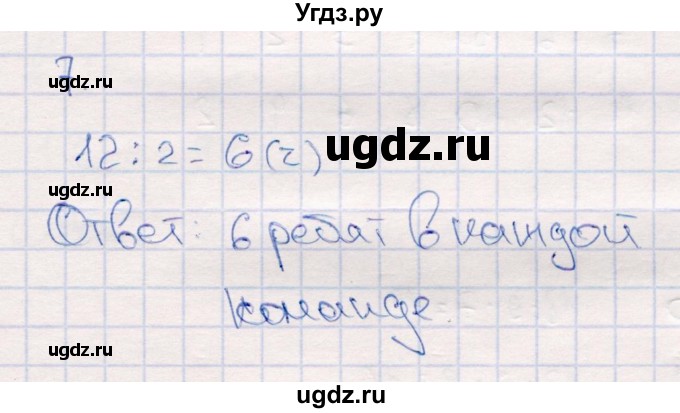 Угдз.ру
7
ugdz.ru
12 : 2 = 6 (ч)
ugdz.ru
ugdz.ru
Ответ: 6 ребят в каждой
команде.
ugdz.ru
ugdz.ru